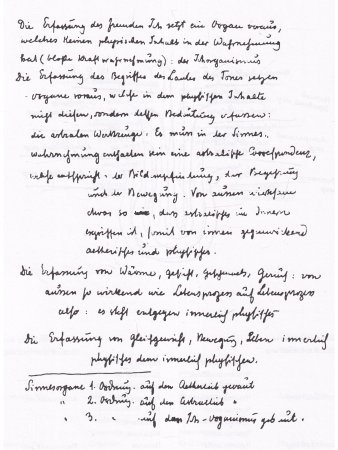 Die Erfassung des fremden Ich setzt ein Organ voraus,
welches keinen physischen Inhalt in der Wahrnehmung
hat (bloße Kraftwahrnehmung): der Ichorganismus
Die Erfassung des Begriffes des Lautes des Tones setzen
organe voraus, welche in dem physischen Inhalte
nicht diesen, sondern dessen Bedeutung erfassen:
die astralen Werkzeuge. Es muss in der Sinnes-
wahrnehmung enthalten sein eine astralische Correspondenz,
welche entspricht: der Bildempfindung, der Begehrung
und der Bewegung. Von aussen
etwas so, dass astralisches im Innern
ergriffen ist, somit von innen gegenwirkend
aetherisches und physisches.
Die Erfassung von Wärme, Gesicht, Geschmack, Geruch: von
aussen so wirkend wie Lebensprozess auf Lebensprozess
also: es steht entgegen innerlich physisches
Die Erfassung von Gleichgewicht, Bewegung, Leben innerlich
physisches dem innerlich physischen.
Sinnesorgane 1. Ordnung. auf den Aetherleib gebaut
" 2. Ordnung. auf den Astralleib "
" 3. " auf den Ich-organismus gebaut.